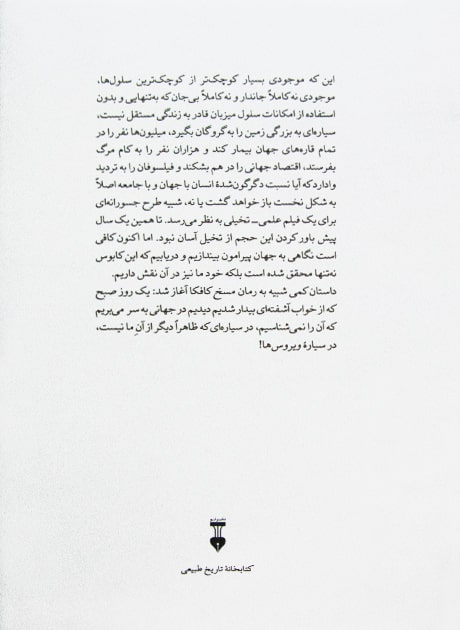 این که موجودی بسیار کوچک‌تر از کوچک‌ترین سلول‌ها،
موجودی نه کاملاً جاندار و نه کاملاً بی‌جان که به‌تنهایی و بدون
استفاده از امکانات سلول میزبان قادر به زندگی مستقل نیست،
سیاره‌ای به بزرگی زمین را به گروگان بگیرد، میلیون‌ها نفر را در
تمام قاره‌های جهان بیمار کند و هزاران نفر را به کام مرگ
بفرستد، اقتصاد جهانی را در هم بشکند و فیلسوفان را به تردید
وادارد که آیا نسبت دگرگون‌شدهٔ انسان با جهان و با جامعه اصلاً
به شکل نخست باز خواهد گشت یا نه، شبیه طرح جسورانه‌ای
برای یک فیلم علمی‌ــ تخیلی به نظر می‌رسد. تا همین یک سال
پیش باور کردن این حجم از تخیل آسان نبود. اما اکنون کافی
است نگاهی به جهان پیرامون بیندازیم و دریابیم که این کابوس
نه‌تنها محقق شده است بلکه خود ما نیز در آن نقش داریم.
داستان کمی شبیه به رمان مسخ کافکا آغاز شد: یک روز صبح
که از خواب آشفته‌ای بیدار شدیم دیدیم در جهانی به سر می‌بریم
که آن را نمی‌شناسیم، در سیاره‌ای که ظاهراً دیگر از آنِ ما نیست،
در سیارهٔ ویروس‌ها!
نشر نو
کتابخانهٔ تاریخ طبیعی